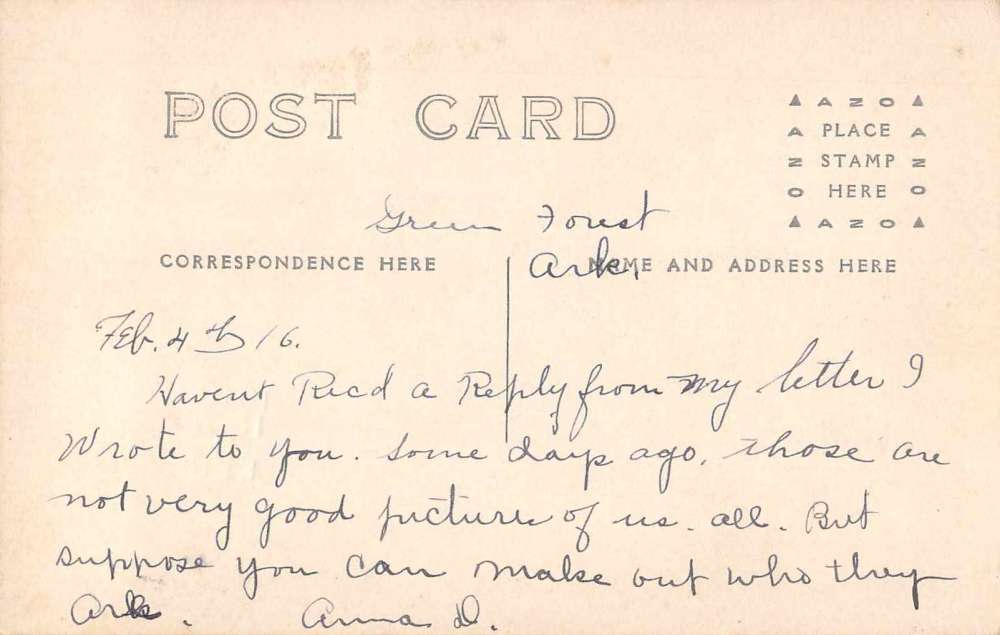 POST CARD
▲ A Z O ▲
A PLACE A
Z STAMP Z
O HERE O
▲ A Z O ▲
Green Forest
Ark.
CORRESPONDENCE HERE
NAME AND ADDRESS HERE
Feb. 4th 16.
Havent Recd a Reply from my letter I
Wrote to you. some days ago. those are
not very good pictures of us. all. But
suppose you can make out who they
are. Anna D.